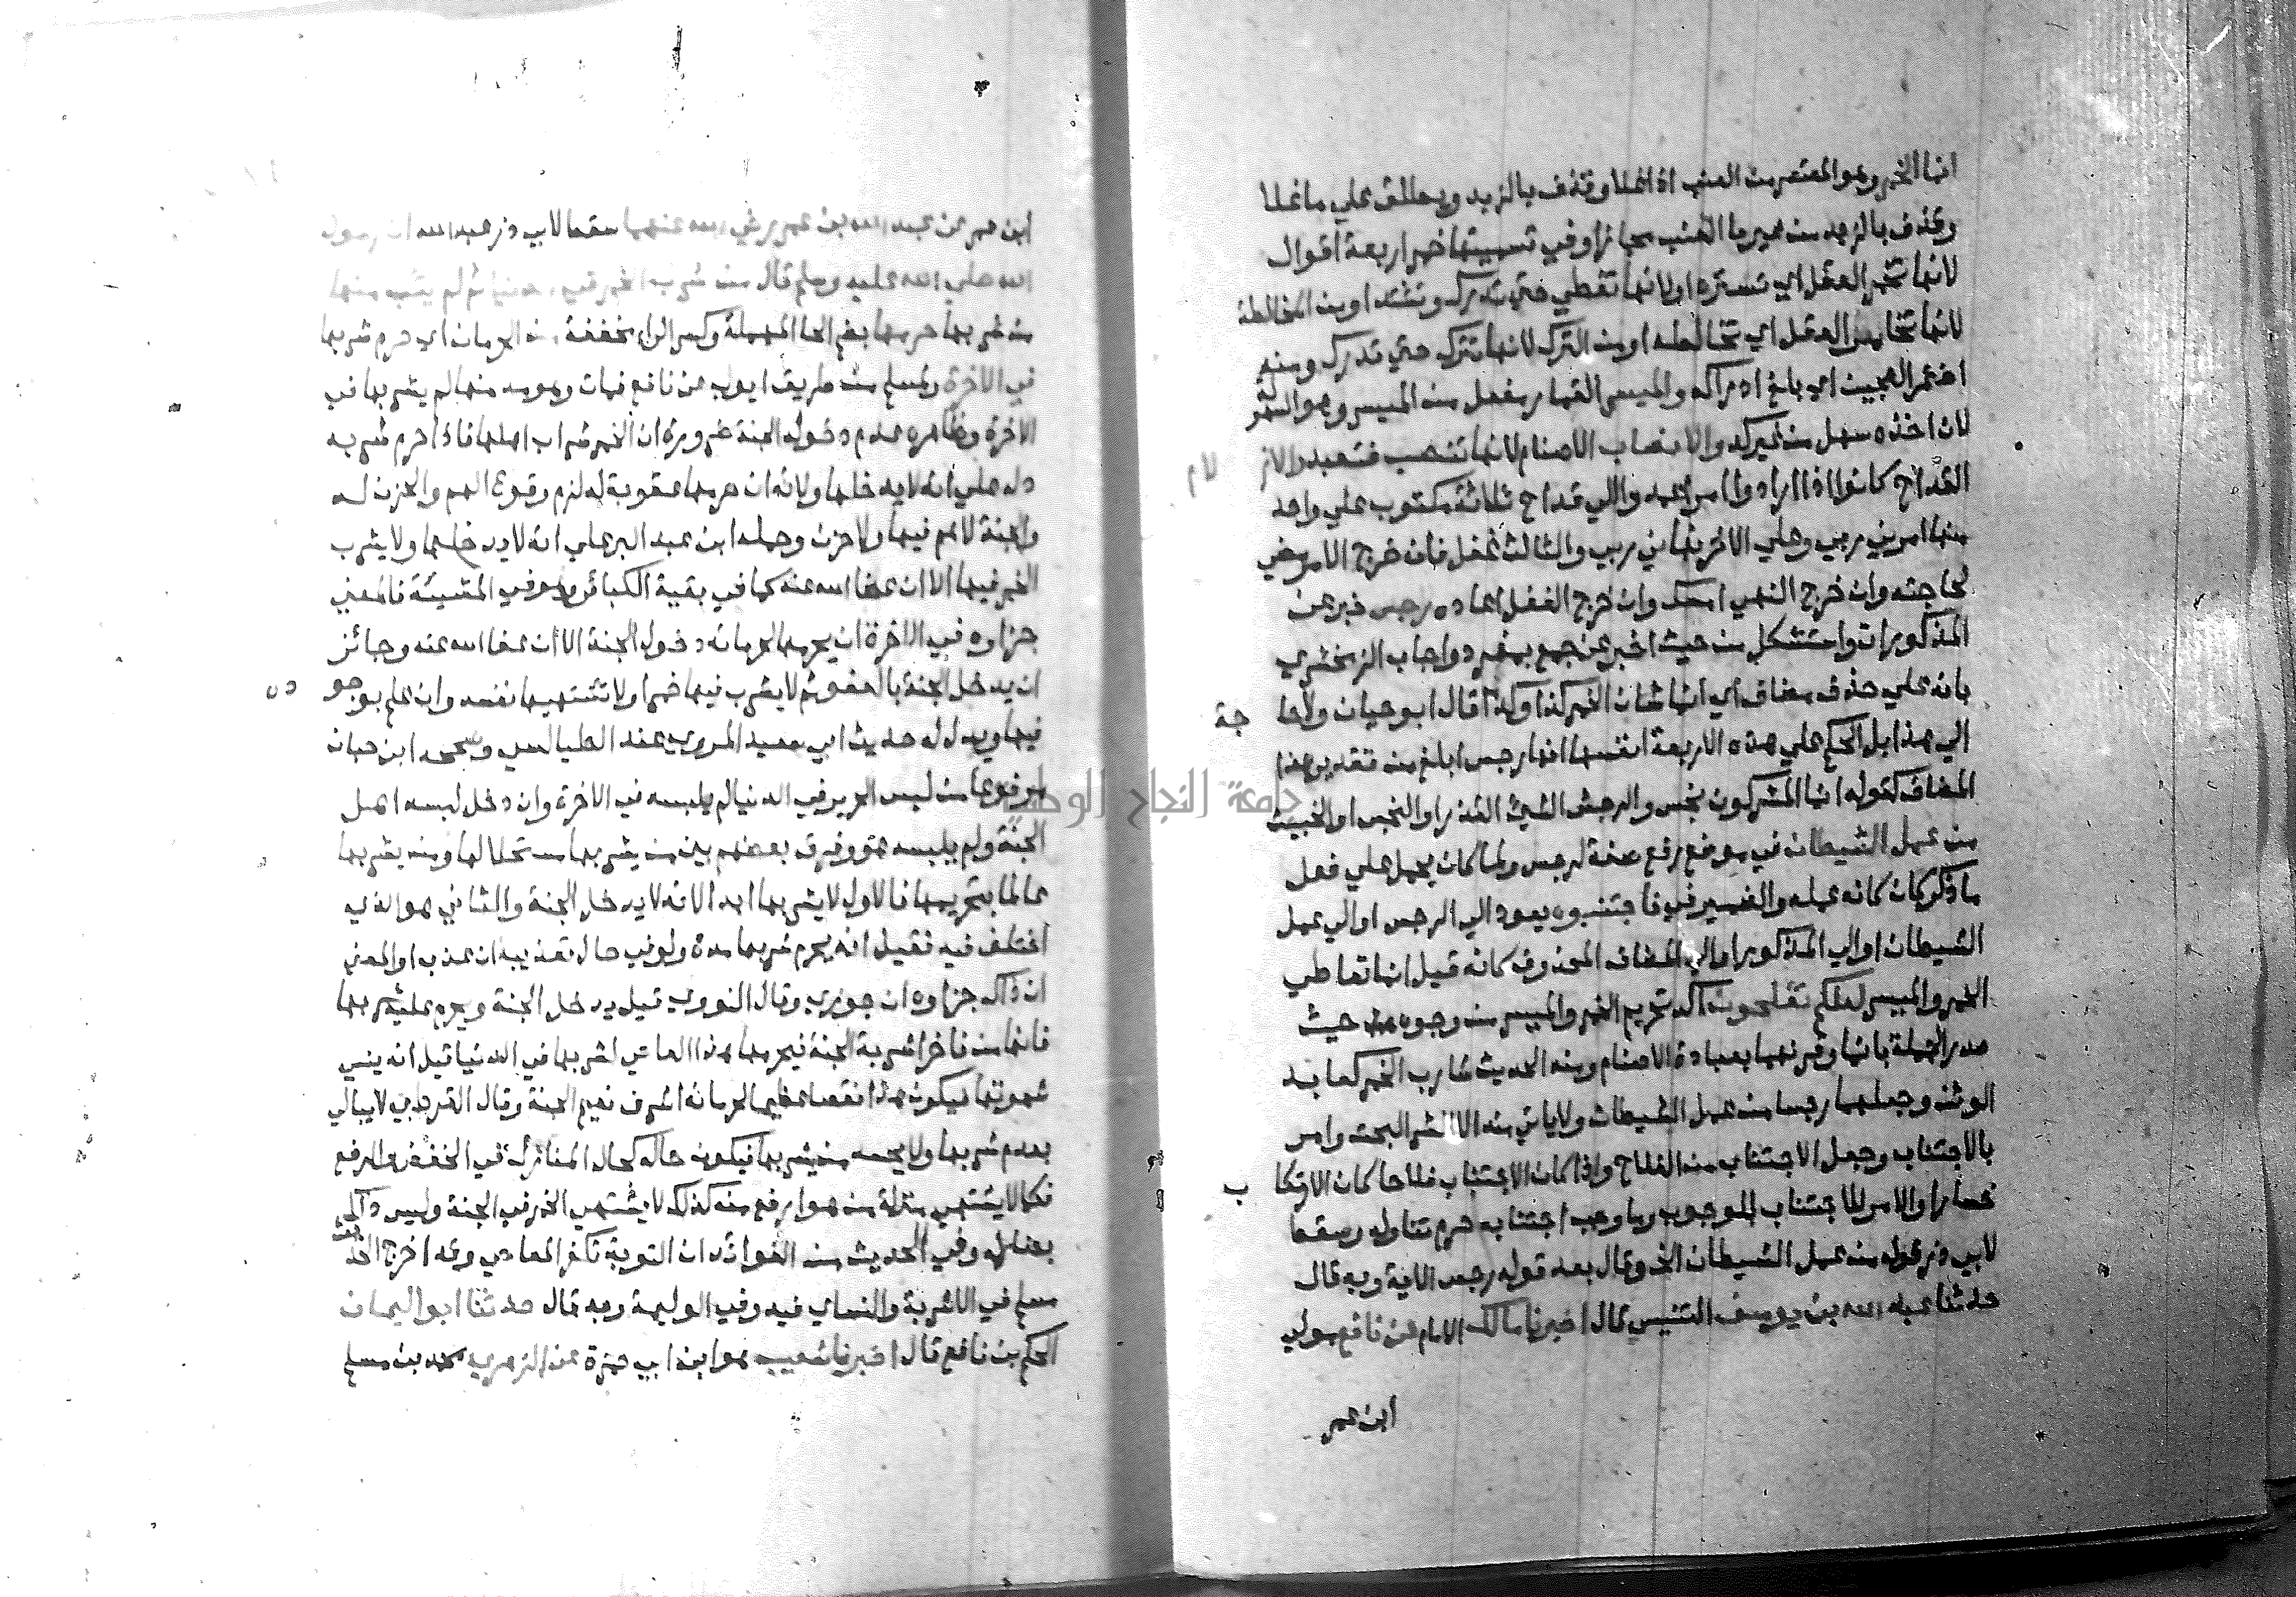 انما الخمر وهو المعتصر من العنب اذا غلا وقذف بالزبد ويطلق علي ما غلا
وقذف بالزبد من غير ما العنب مجازا وفي تسميتها خمرا اربعة اقوال
لانها تخمر العقل اي تستره او لانها تغطي حتي تدرك وتشتد او من المخالطة
لانها تخامر العقل اي تخالطه او من الترك لانها تترك حتي تدرك ومنه
اختمر العجين اي بلغ ادراكه والميسر القمار مفعل من الميسر وهو السهولة
لان اخذه سهل من غير كد والانصاب الاصنام لانها تنصب فتعبد والازلام
القداح كانوا اذا ارادوا امرا عمدوا الي قداح ثلاثة مكتوب علي واحد
منها امرني ربي وعلي الاخر نهاني ربي والثالث غفل فان خرج الامر مضي
لحاجته وان خرج النهي امسك وان خرج الغفل اعاده رجس خبر عن
المذكورات واستشكل من حيث اخبر عن جمع بمفرد واجاب الزمخشري
بانه علي حذف مضاف اي انما شان الخمر كذا وكذا قال ابو حيان ولا حاجة
الي هذا بل الحكم علي هذه الاربعة انفسها انها رجس ابلغ من تقدير هذا
المضاف كقوله انما المشركون نجس والرجس الشي القذر او النجس او الخبيث
من عمل الشيطان في موضع رفع صفة لرجس ولما كان يحمل علي فعل
ما ذكر كان كانه عمله والضمير في فاجتنبوه يعود الي الرجس او الي عمل
الشيطان او الي المذكور او الي المضاف المحذوف كانه قيل انما تعاطي
الخمر والميسر لعلكم تفلحون اكد تحريم الخمر والميسر من وجوه حيث
صدر الجملة بانما وقرنهما بعبادة الاصنام ومنه الحديث شارب الخمر كعابد
الوثن وجعلهما رجسا من عمل الشيطان ولا ياتي منه الا الشر البحت وامر
بالاجتناب وجعل الاجتناب من الفلاح واذا كان الاجتناب فلاحا كان الارتكاب
خسارا والامر للاجتناب للوجوب وما وجب اجتنابه حرم تناوله وسقط
لابي ذر قوله من عمل الشيطان الخ وقال بعد قوله رجس الاية وبه قال
حدثنا عبد الله بن يوسف التنيسي قال اخبرنا مالك الامام عن نافع مولي
ابن عمر
ابن عمر عن عبد الله بن عمر رضي الله عنهما سقط لابي ذر عبد الله ان رسول
الله صلي الله عليه وسلم قال من شرب الخمر في الدنيا ثم لم يتب منها
من شربها حرمها بضم الحا المهملة وكسر الرا مخففة من الحرمان اي حرم شربها
في الاخرة ولمسلم من طريق ايوب عن نافع فمات وهو مدمنها لم يشربها في
الاخرة وظاهره عدم دخوله الجنة ضرورة ان الخمر شراب اهلها فاذا حرم شربه
دل علي انه لا يدخلها ولانه ان حرمها عقوبة له لزم وقوع الهم والحزن له
والجنة لا هم فيها ولا حزن وحمله ابن عبد البر علي انه لا يدخلها ولا يشرب
الخمر فيها الا ان عفا الله عنه كما في بقية الكبائر وهو في المشيئة فالمعني
جزاوه في الاخرة ان يحرمها لحرمانه دخول الجنة الا ان عفا الله عنه وجائز
ان يدخل الجنة بالعفو ثم لا يشرب فيها خمرا ولا تشتهيها نفسه وان علم بوجودها
فيها ويدل له حديث ابي سعيد المروي عند الطيالسي وصححه ابن حبان
مرفوعا من لبس الحرير في الدنيا لم يلبسه في الاخرة وان دخل لبسه اهل
الجنة ولم يلبسه هو وفرق بعضهم بين من يشربها مستحلا لها ومن يشربها
عالما بتحريمها فالاول لا يشربها ابدا لانه لا يدخل الجنة والثاني هو الذي
اختلف فيه فقيل انه يحرم شربها مدة ولو في حال تعذيبه ان عذب او المعني
ان ذاك جزاوه ان جوزي وقال النووي قيل يدخل الجنة ويحرم عليه شربها
فانها من فاخر اشربة الجنة فيحرمها هذا العاصي لشربها في الدنيا قيل انه ينسي
شهوتها فيكون هذا نقصا عظيما لحرمانه اشرف نعيم الجنة وقال القرطبي لا يبالي
بعدم شربها ولا يحسد من يشربها فيكون حاله كحال المنازل في الخفض والرفع
فكما لا يشتهي منزلة من هو ارفع منه كذلك لا يشتهي الخمر في الجنة وليس ذاك
بضار له وفي الحديث من الفوائد ان التوبة تكفر المعاصي وقد اخرج الحديث
مسلم في الاشربة والنساي فيه وفي الوليمة وبه قال حدثنا ابو اليمان
الحكم بن نافع قال اخبرنا شعيب هو ابن ابي حمزة عن الزهري محمد بن مسلم
جامعة النجاح الوطنية